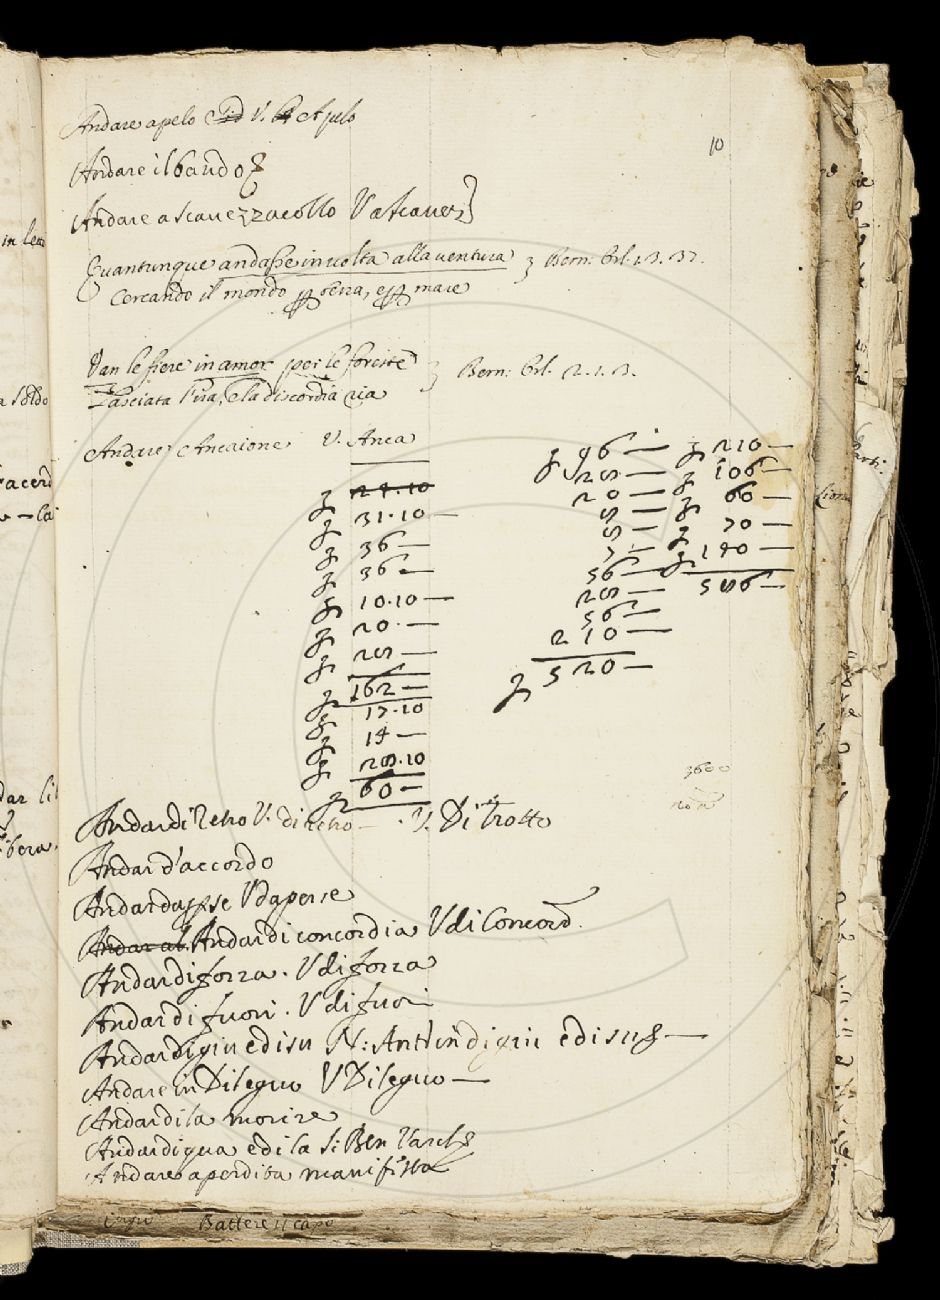 10
Andare a pelo V. A pelo
Andare il bando
Andare a scavezzacollo V a scavez
Quantunque andasse in volta alla ventura Bern: Orl. 1.3.37.
Cercando il mondo per terra, e per mare
Van le fiere in amor per le foreste Bern: Orl. 2.1.3.
Lasciata l'ira, e la discordia ria
Andare Ancaione V. Anca
31.10 —
36 —
36 —
10.10 —
20. —
28 —
162 —
17.10
14 —
28.10
60 —
96 —
28 —
20 —
8 —
8 —
7 —
56 —
28 —
56 —
210 —
520 —
210 —
106 —
60 —
70 —
140 —
586 —
3600
Andar di retro V. di retro — V. Di trotto
Andar d'accordo
Andar da per se V da per se
Andar al Andar di concordia V di Concord.
Andar di forza. V di forza
Andar di fuori. V di fuori
Andar di giu e di su V: Andar in di giu e di su —
Andare in Dileguo V Dileguo —
Andar di la morire
Andar di qua e di la S: Ben Varch
Andare a perdita manifesta
Battere il capo
in len
a soldo
dar li
ibera.